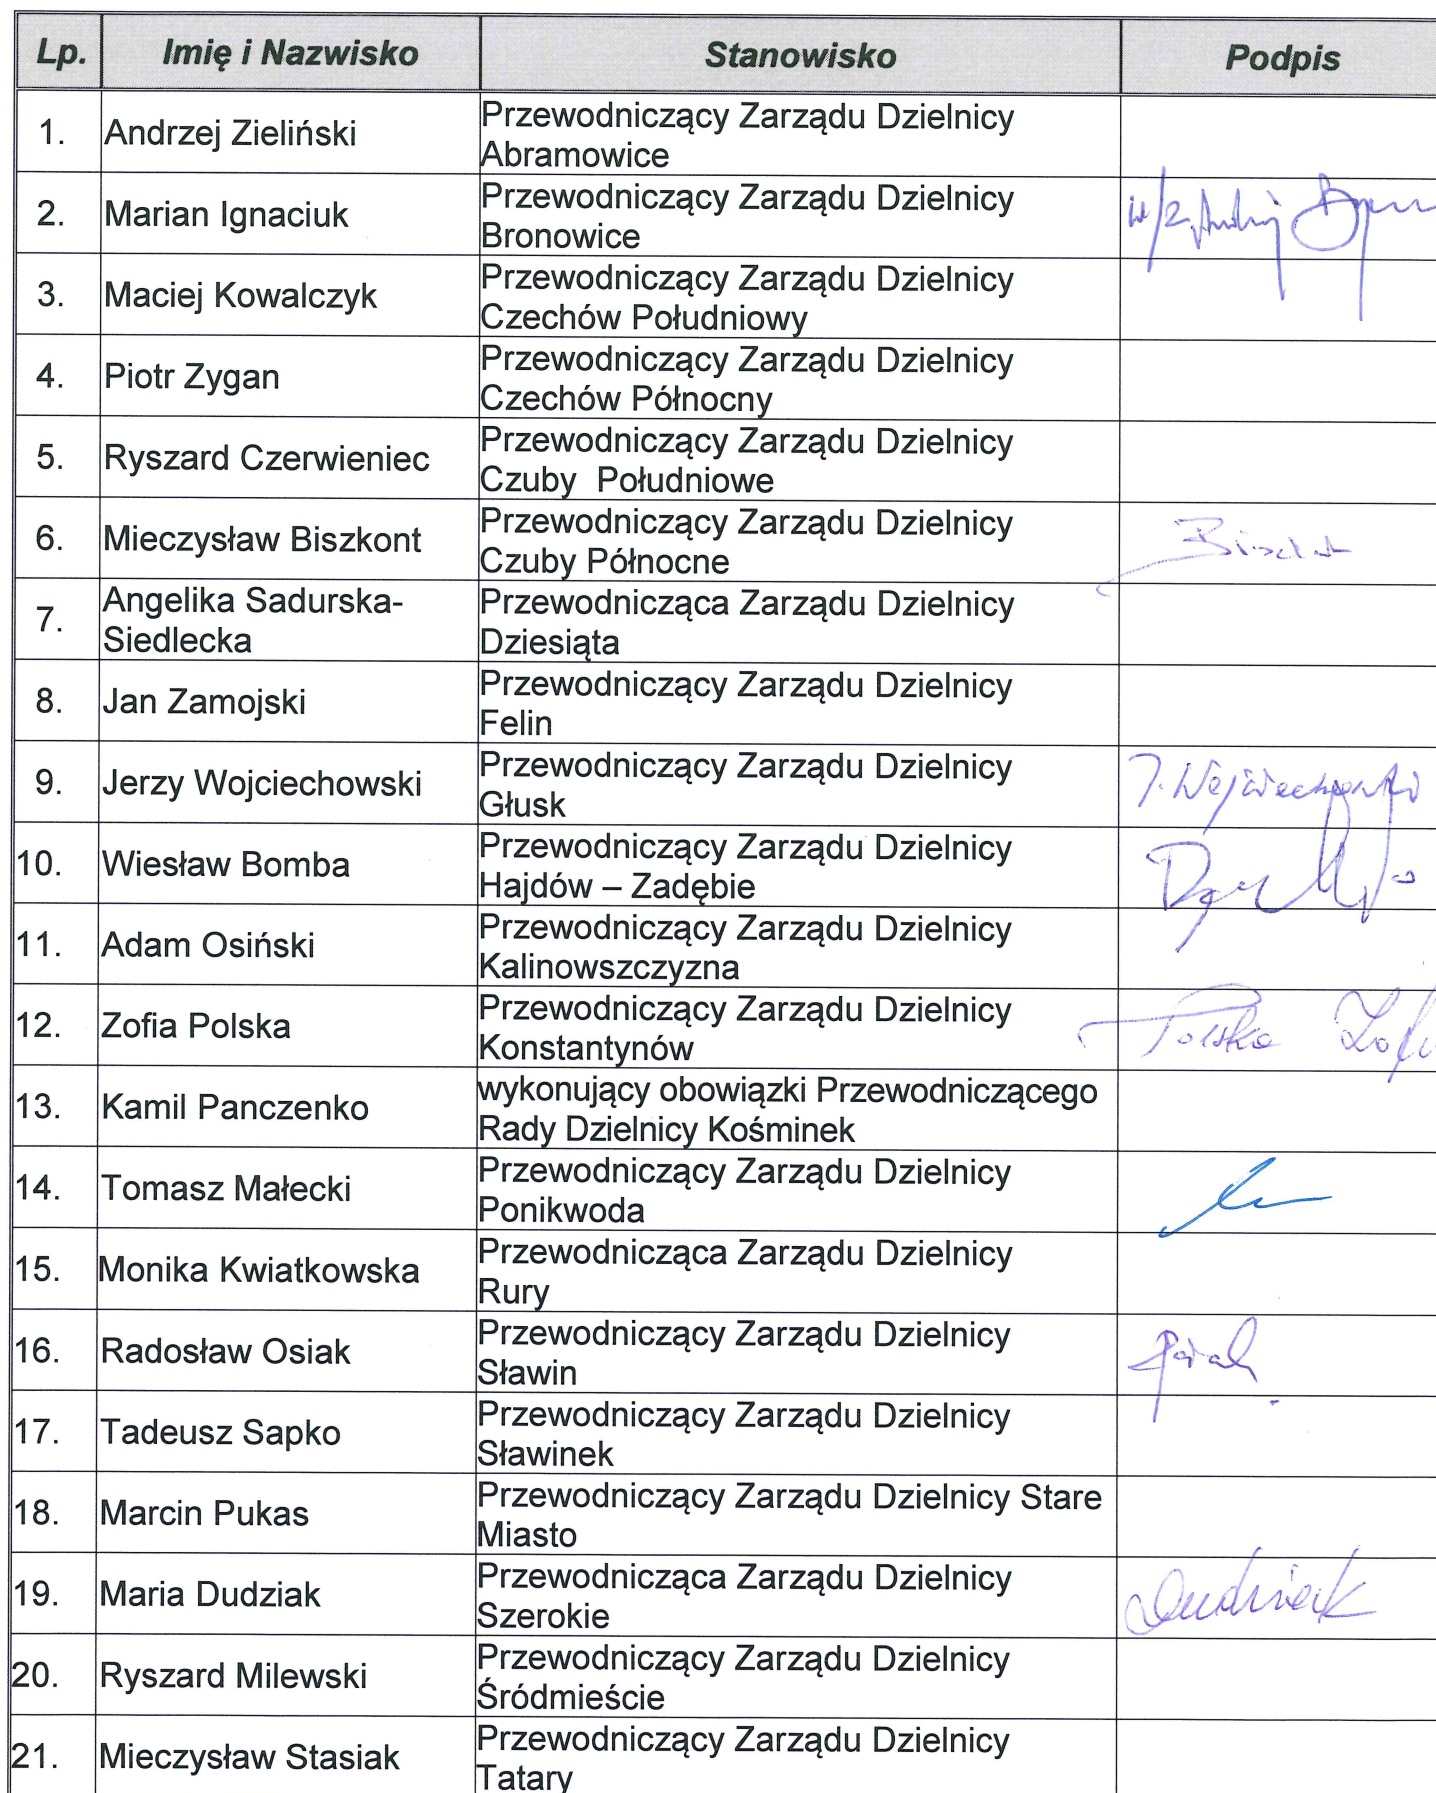 Lp. Imię i Nazwisko Stanowisko Podpis
1. Andrzej Zieliński Przewodniczący Zarządu Dzielnicy
Abramowice
2. Marian Ignaciuk Przewodniczący Zarządu Dzielnicy
Bronowice
3. Maciej Kowalczyk Przewodniczący Zarządu Dzielnicy
Czechów Południowy
4. Piotr Zygan Przewodniczący Zarządu Dzielnicy
Czechów Północny
5. Ryszard Czerwieniec Przewodniczący Zarządu Dzielnicy
Czuby Południowe
6. Mieczysław Biszkont Przewodniczący Zarządu Dzielnicy
Czuby Północne
7. Angelika Sadurska- Przewodnicząca Zarządu Dzielnicy
Siedlecka Dziesiąta
8. Jan Zamojski Przewodniczący Zarządu Dzielnicy
Felin
9. Jerzy Wojciechowski Przewodniczący Zarządu Dzielnicy J. Wojciechowski
Głusk
10. Wiesław Bomba Przewodniczący Zarządu Dzielnicy
Hajdów – Zadębie
11. Adam Osiński Przewodniczący Zarządu Dzielnicy
Kalinowszczyzna
12. Zofia Polska Przewodniczący Zarządu Dzielnicy Polska
Konstantynów
13. Kamil Panczenko wykonujący obowiązki Przewodniczącego
Rady Dzielnicy Kośminek
14. Tomasz Małecki Przewodniczący Zarządu Dzielnicy
Ponikwoda
15. Monika Kwiatkowska Przewodnicząca Zarządu Dzielnicy
Rury
16. Radosław Osiak Przewodniczący Zarządu Dzielnicy
Sławin
17. Tadeusz Sapko Przewodniczący Zarządu Dzielnicy
Sławinek
18. Marcin Pukas Przewodniczący Zarządu Dzielnicy Stare
Miasto
19. Maria Dudziak Przewodnicząca Zarządu Dzielnicy Dudziak
Szerokie
20. Ryszard Milewski Przewodniczący Zarządu Dzielnicy
Śródmieście
21. Mieczysław Stasiak Przewodniczący Zarządu Dzielnicy
Tatary